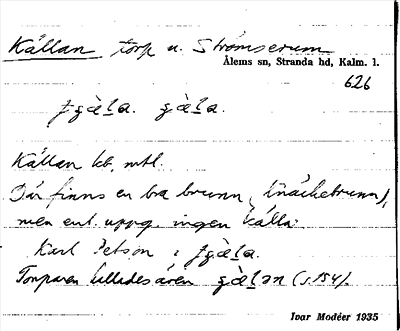 Källan torp u. Strömserum
Ålems sn, Stranda hd, Kalm. l.
626
Källan kb, mtl.
Där finns en bra brunn (knäckebrunn),
men enl. uppg. ingen källa:
Karl Petson :
Torparen kallades även (s. 154).
Ivar Modéer 1935